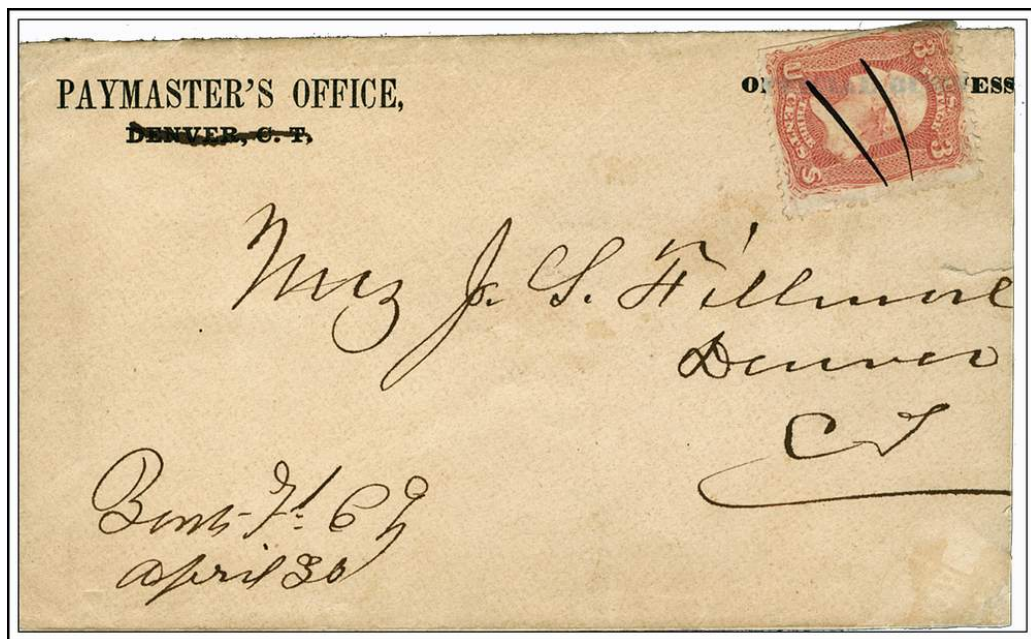 PAYMASTER'S OFFICE,
DENVER, C. T,
3 3
U S
THREE CENTS
Maj J. S. Fillmore
Denver
C T
Bents Ft. C T
April 30